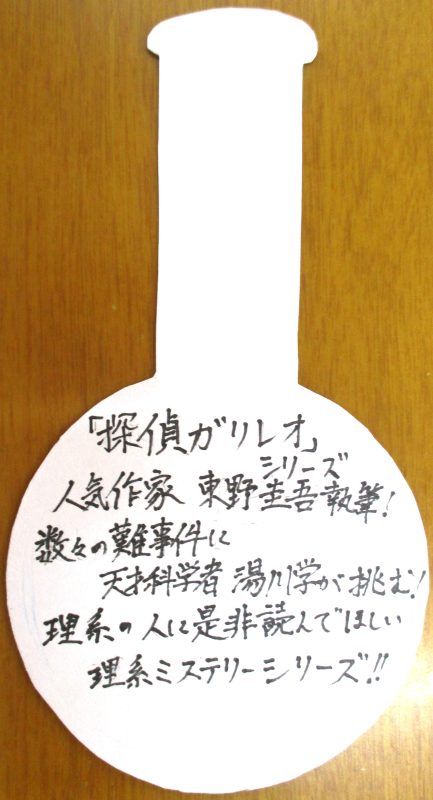 「探偵ガリレオ」
シリーズ
人気作家 東野圭吾執筆!
数々の難事件に
天才科学者 湯川学が挑む!
理系の人に是非読んでほしい
理系ミステリーシリーズ!!